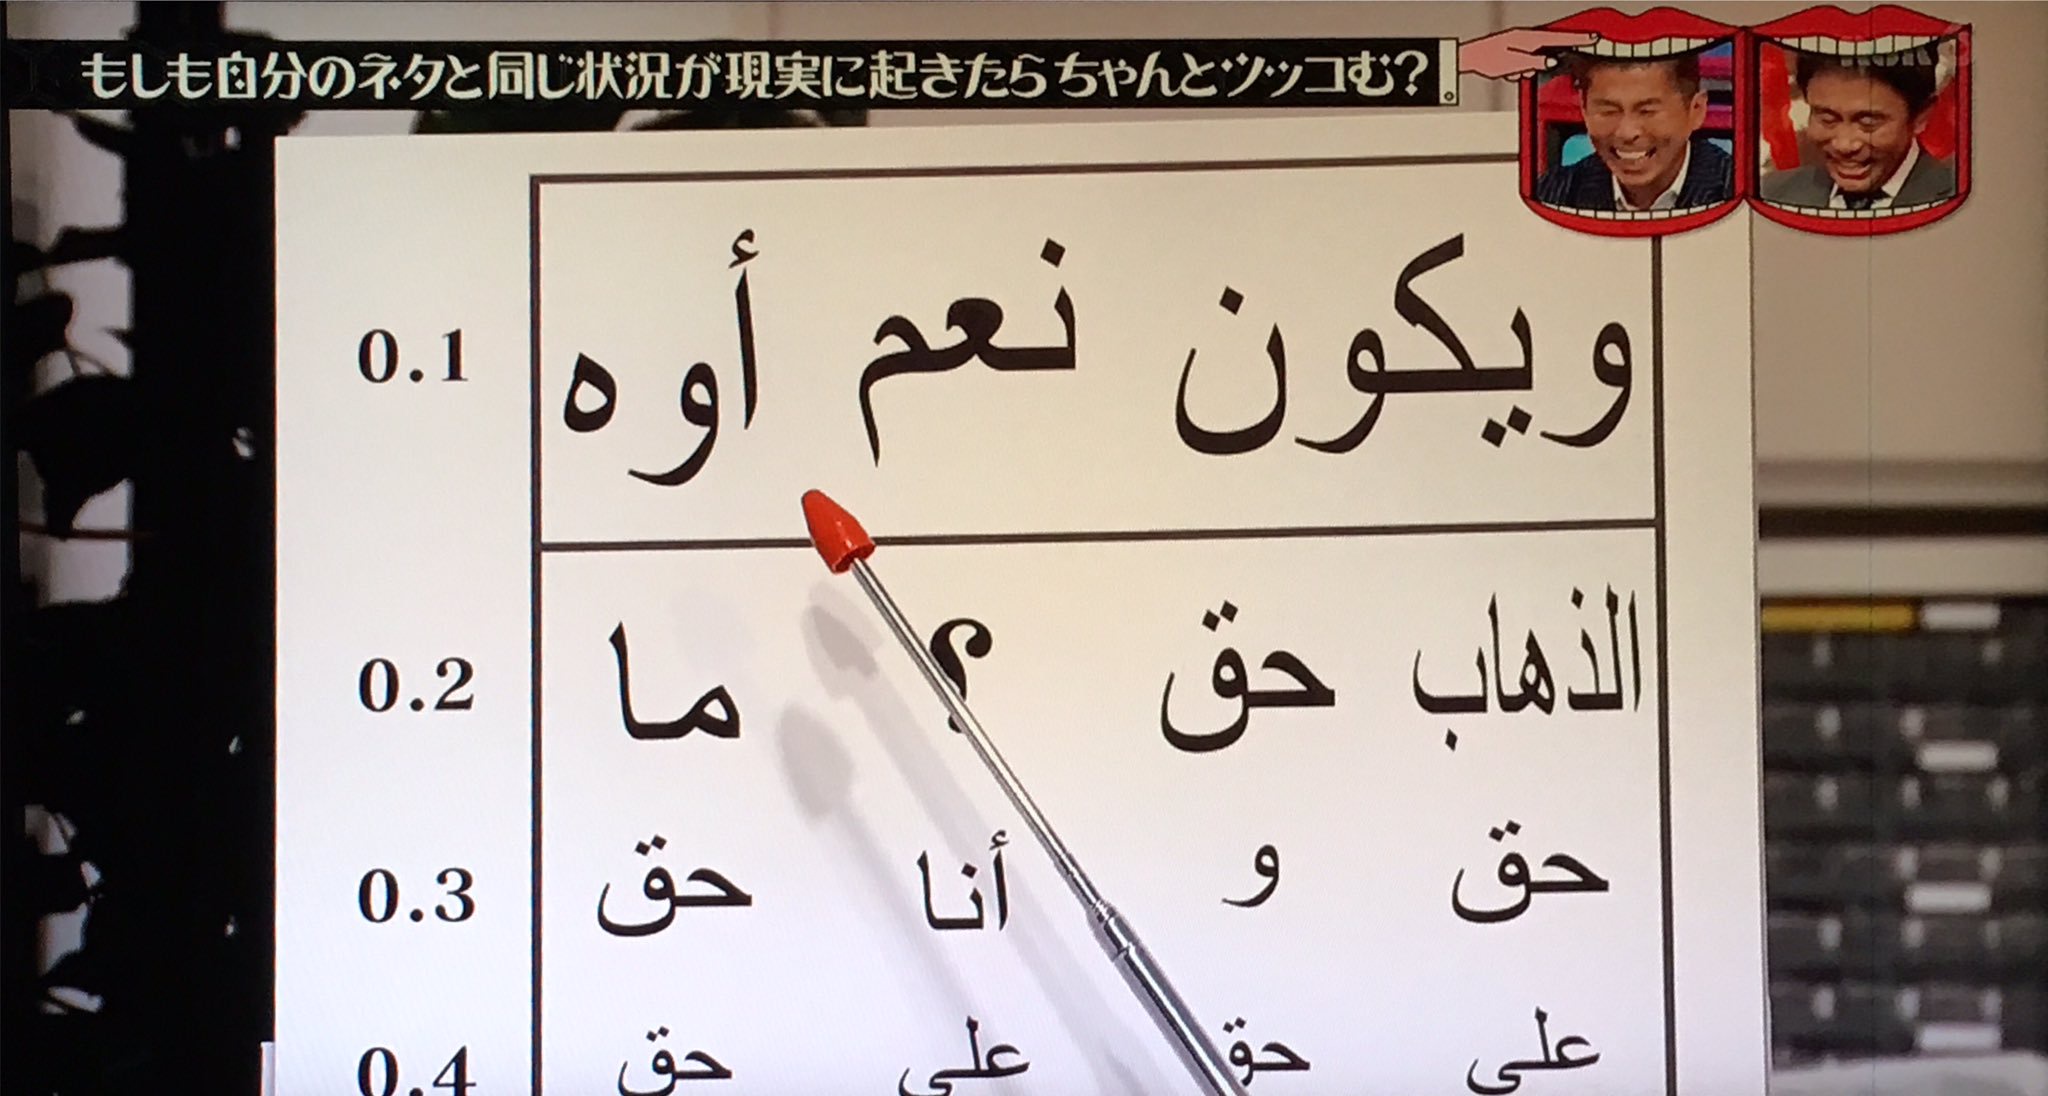 もしも自分のネタと同じ状況が現実に起きたらちゃんとツッコむ?。
0.1 ويكون نعم أوه
0.2 الذهاب حق ؟ ما
0.3 حق و أنا حق
0.4 على حق على حق